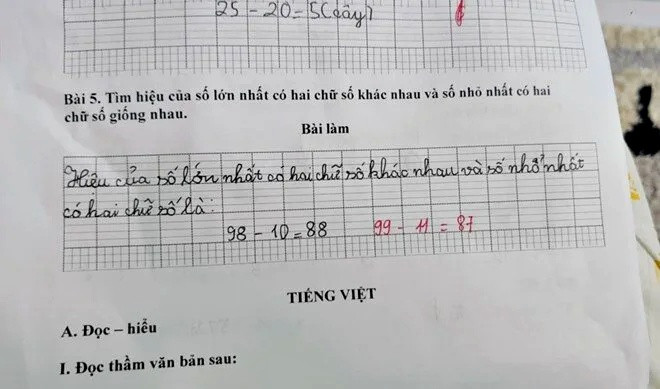 25 - 20 = 5 (cây)
Bài 5. Tìm hiệu của số lớn nhất có hai chữ số khác nhau và số nhỏ nhất có hai
chữ số giống nhau.
Bài làm
Hiệu của số lớn nhất có hai chữ số khác nhau và số nhỏ nhất
có hai chữ số là:
98 - 10 = 88 99 - 11 = 87
TIẾNG VIỆT
A. Đọc – hiểu
I. Đọc thầm văn bản sau: